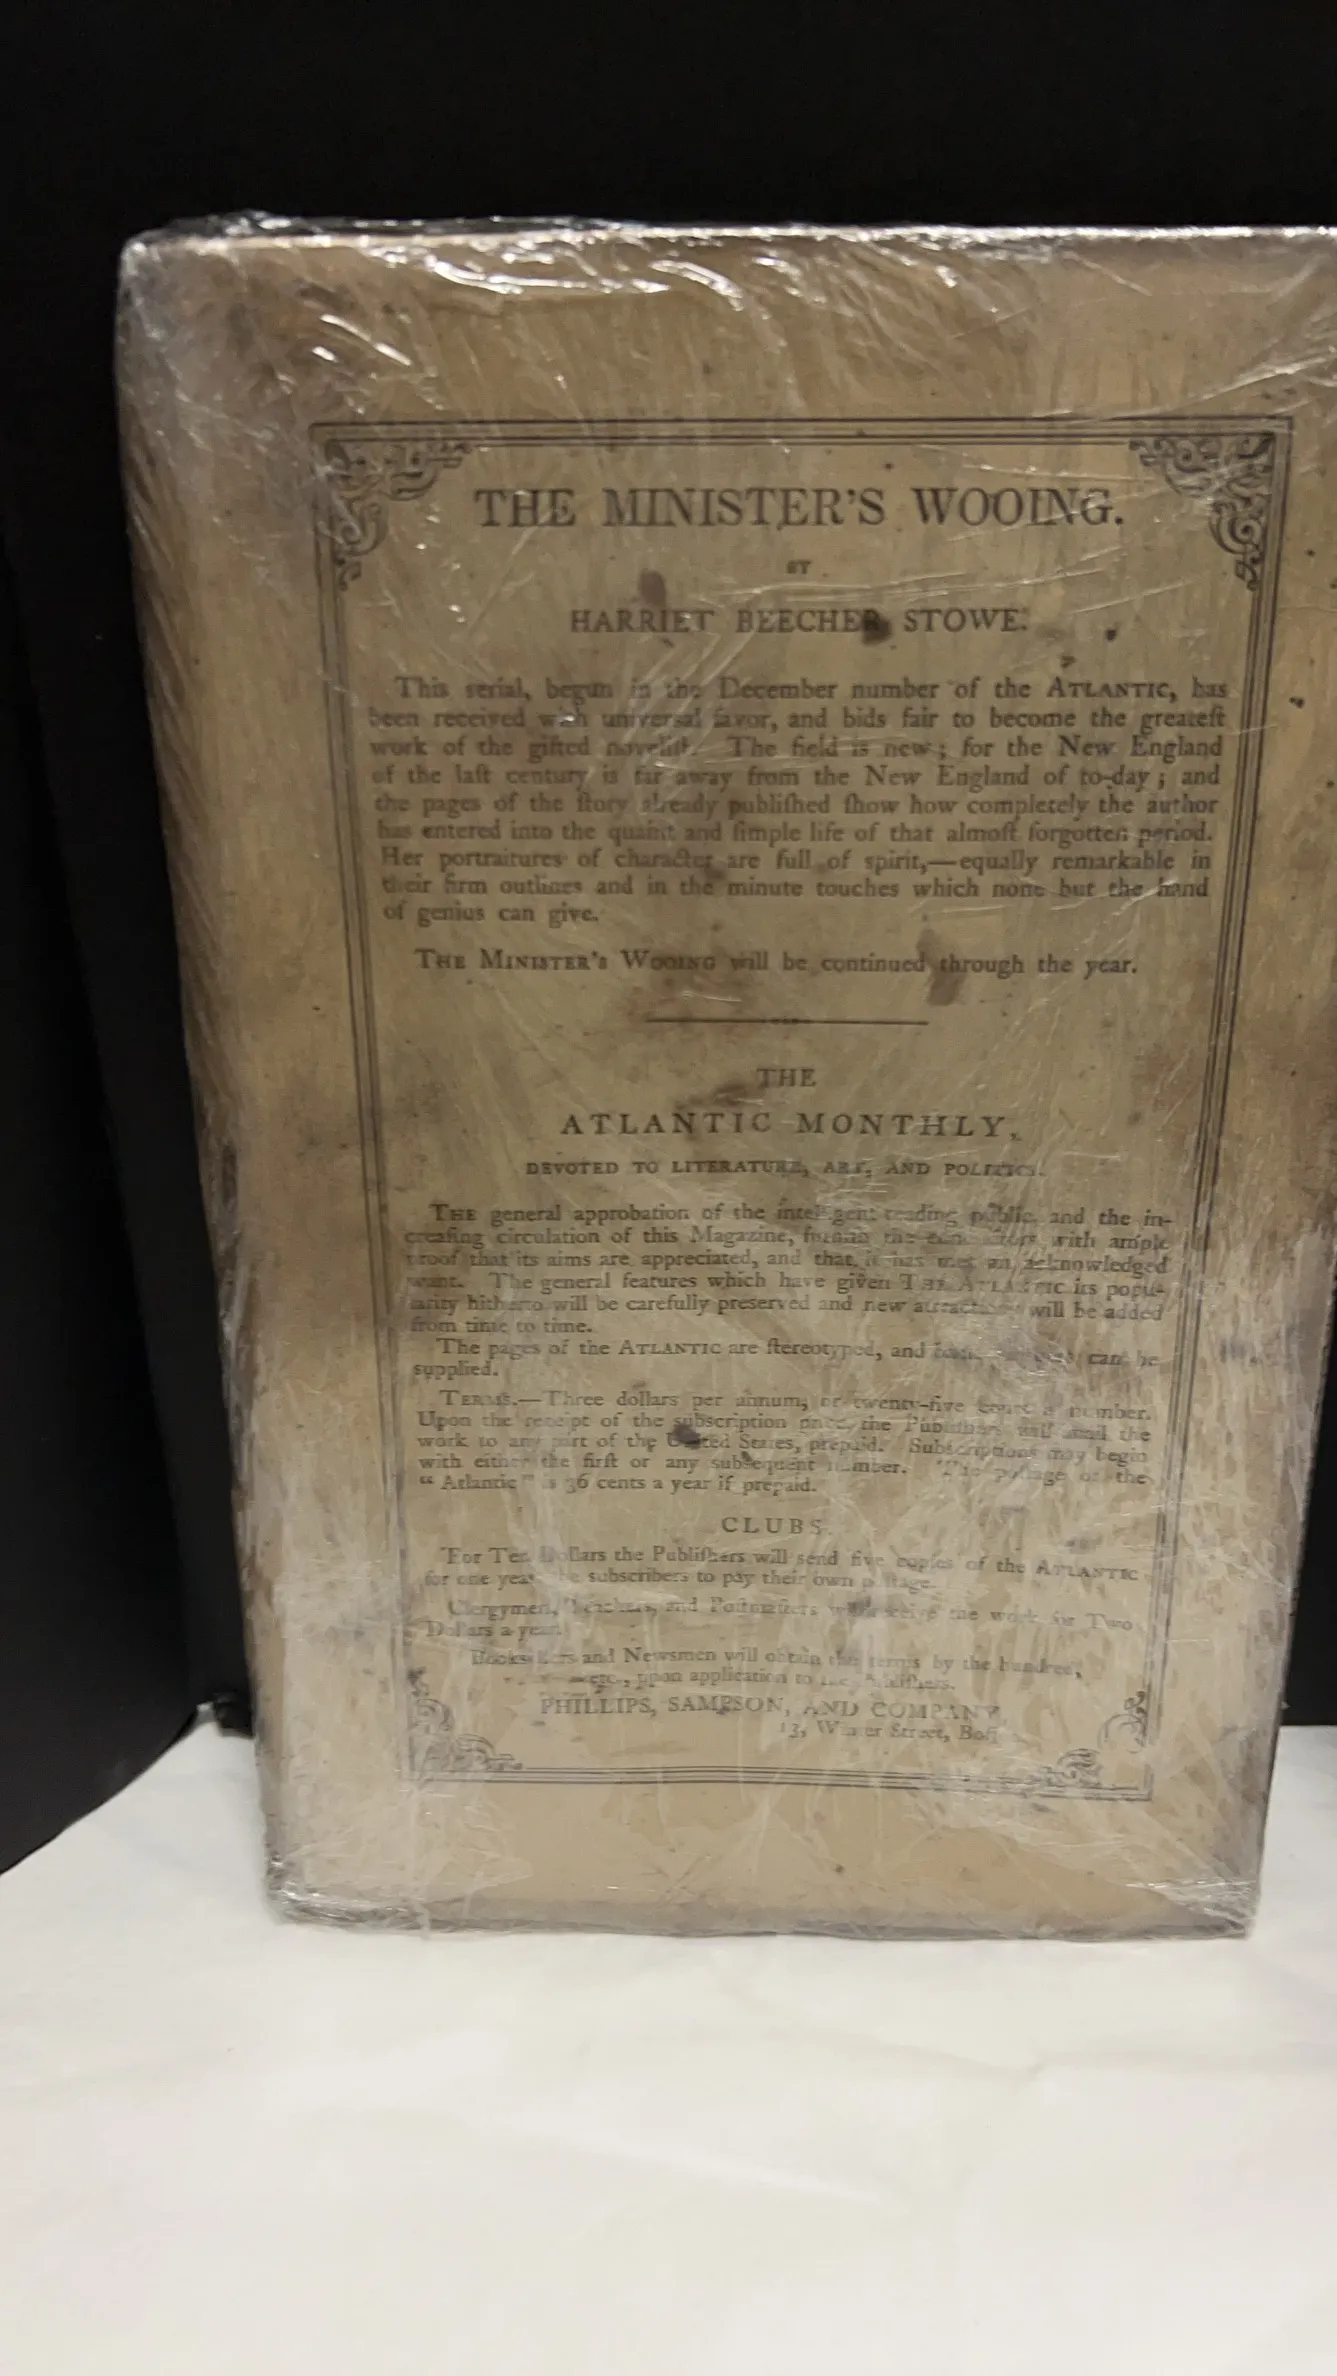 THE MINISTER'S WOOING.
BY
HARRIET BEECHER STOWE.
This serial, begun in the December number of the ATLANTIC, has
been received with universal favor, and bids fair to become the greateſt
work of the gifted noveliſt. The field is new; for the New England
of the laſt century is far away from the New England of to-day; and
the pages of the ſtory already publiſhed ſhow how completely the author
has entered into the quaint and ſimple life of that almoſt forgotten period.
Her portraitures of character are full of spirit,—equally remarkable in
their firm outlines and in the minute touches which none but the hand
of genius can give.
THE MINISTER'S WOOING will be continued through the year.
THE
ATLANTIC MONTHLY,
DEVOTED TO LITERATURE, ART, AND POLITICS.
THE general approbation of the intelligent reading public, and the in-
creaſing circulation of this Magazine, furniſh the conductors with ample
proof that its aims are appreciated, and that it has met an acknowledged
want. The general features which have given THE ATLANTIC its popu-
larity hitherto will be carefully preserved and new attractions will be added
from time to time.
The pages of the ATLANTIC are ſtereotyped, and can be
supplied.
TERMS.—Three dollars per annum, or twenty-five cents a number.
Upon the receipt of the subscription price, the Publiſhers will mail the
work to any part of the United States, prepaid. Subscriptions may begin
with either the firſt or any subsequent number. The poſtage of the
"Atlantic" is 36 cents a year if prepaid.
CLUBS.
For Ten Dollars the Publiſhers will send five copies of the ATLANTIC
for one year, the subscribers to pay their own poſtage.
Clergymen, Teachers, and Poſtmaſters will receive the work for Two
Dollars a year.
Bookſellers and Newsmen will obtain the terms by the hundred,
etc., upon application to the Publiſhers.
PHILLIPS, SAMPSON, AND COMPANY,
13, Winter Street, Boſ